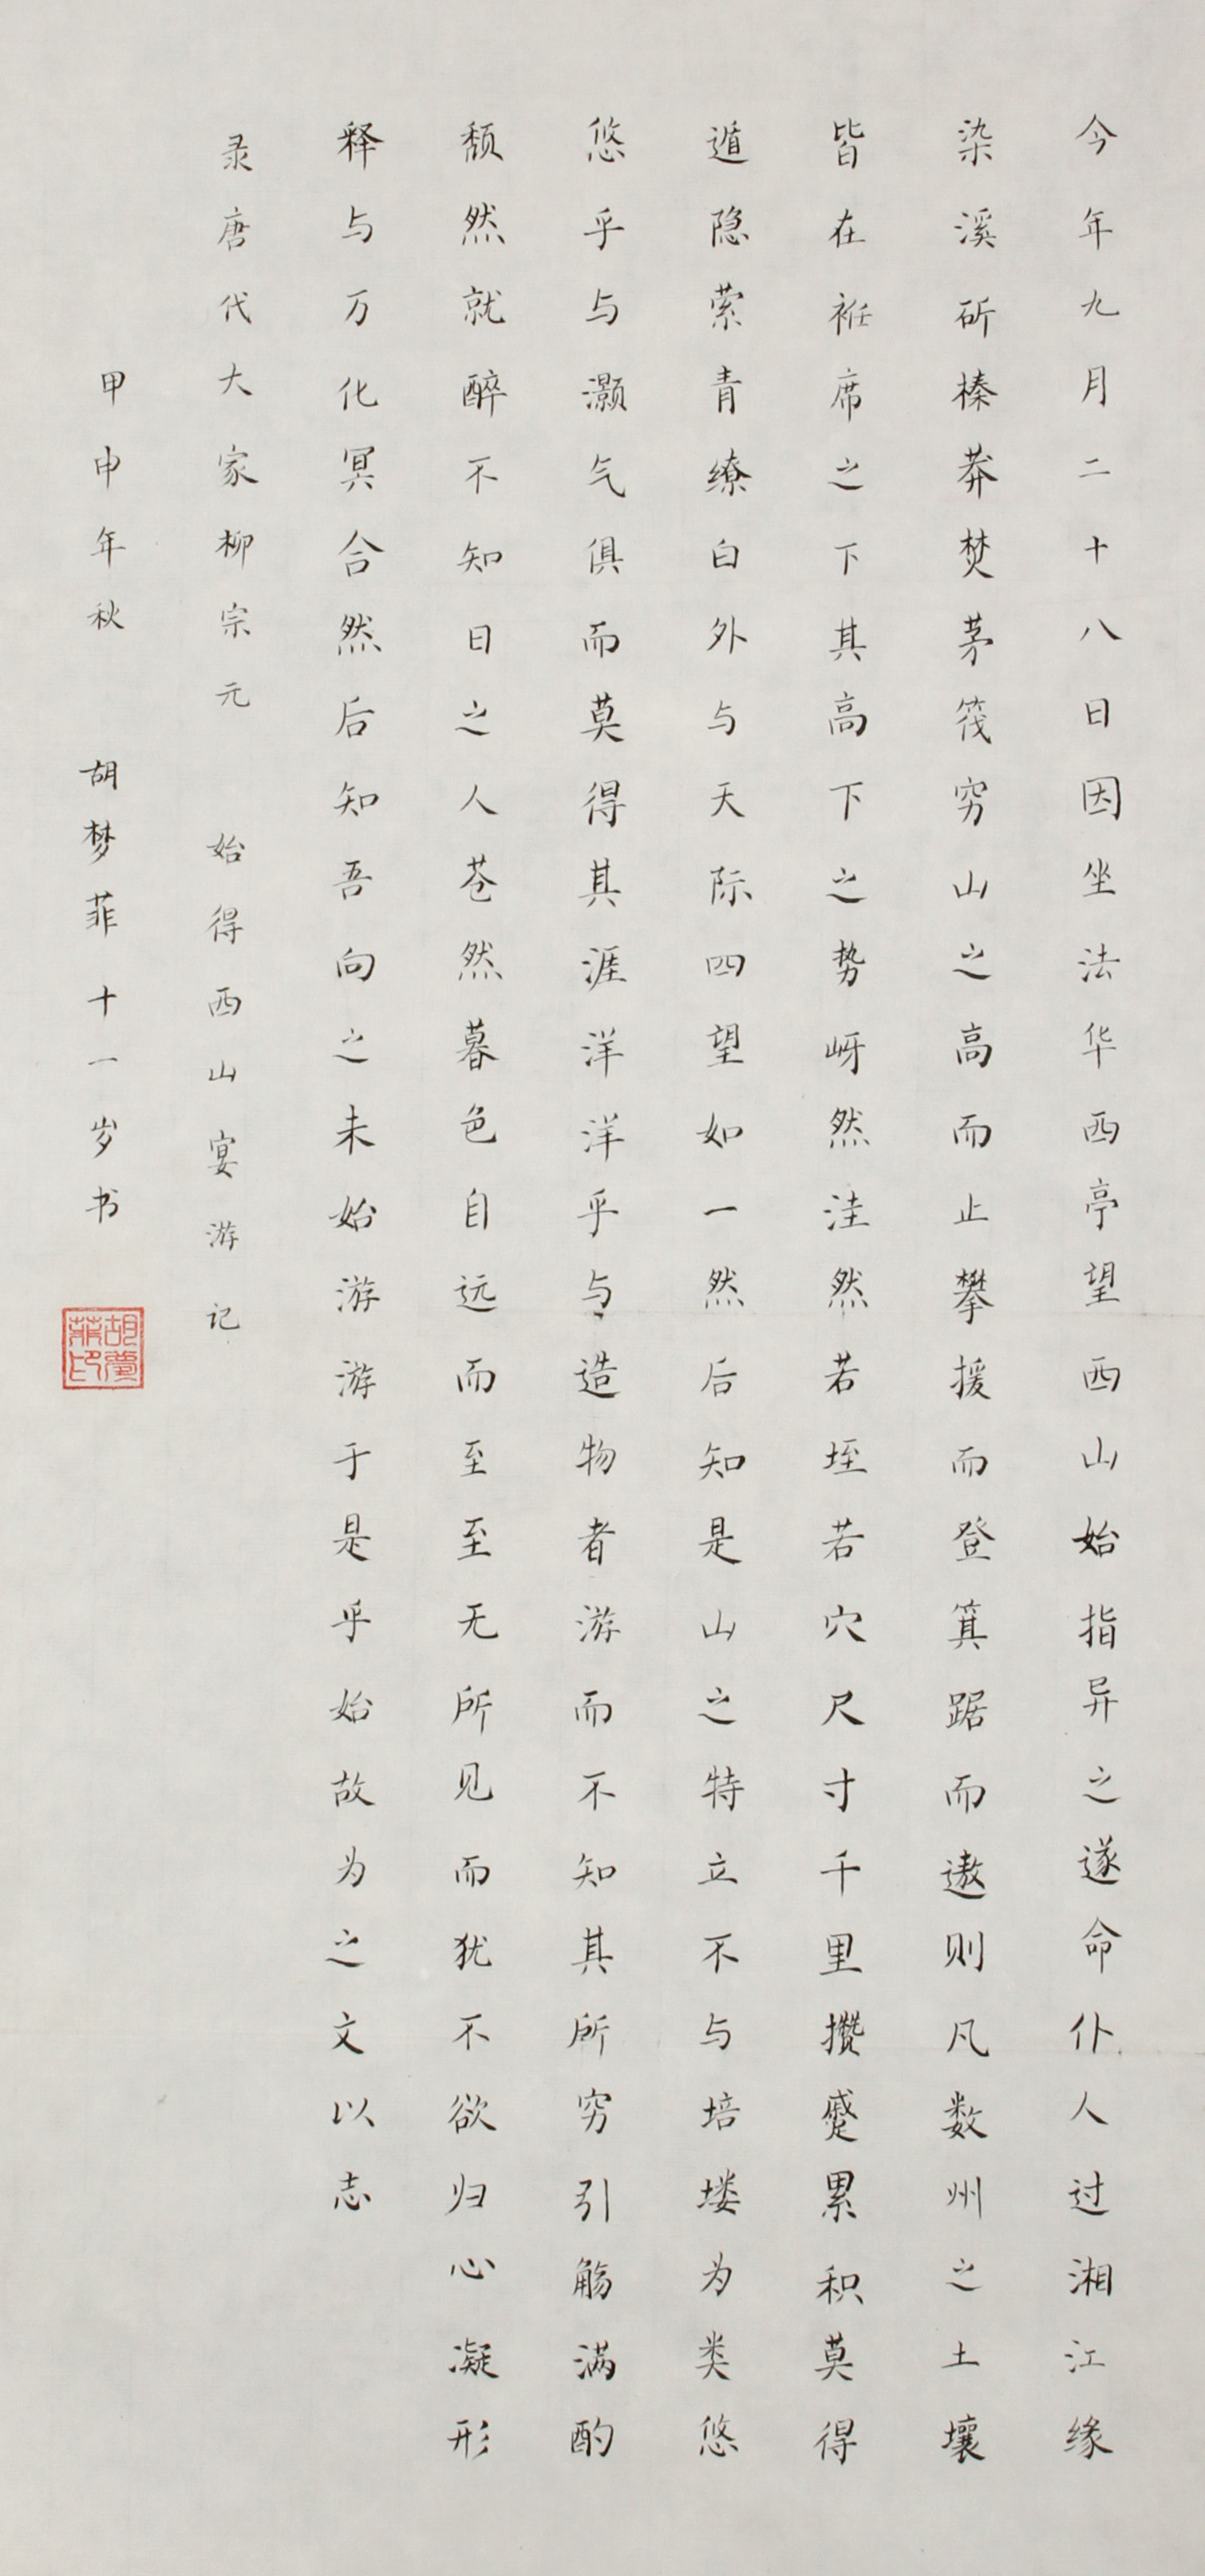 今年九月二十八日因坐法华西亭望西山始指异之遂命仆人过湘江缘
染溪斫榛莽焚茅筏穷山之高而止攀援而登箕踞而遨则凡数州之土壤
皆在袵席之下其高下之势岈然洼然若垤若穴尺寸千里攒蹙累积莫得
遁隐萦青缭白外与天际四望如一然后知是山之特立不与培塿为类悠
悠乎与灏气俱而莫得其涯洋洋乎与造物者游而不知其所穷引觞满酌
颓然就醉不知日之人苍然暮色自远而至至无所见而犹不欲归心凝形
释与万化冥合然后知吾向之未始游游于是乎始故为之文以志
录唐代大家柳宗元 始得西山宴游记
甲申年秋 胡梦菲十一岁书
胡梦菲印